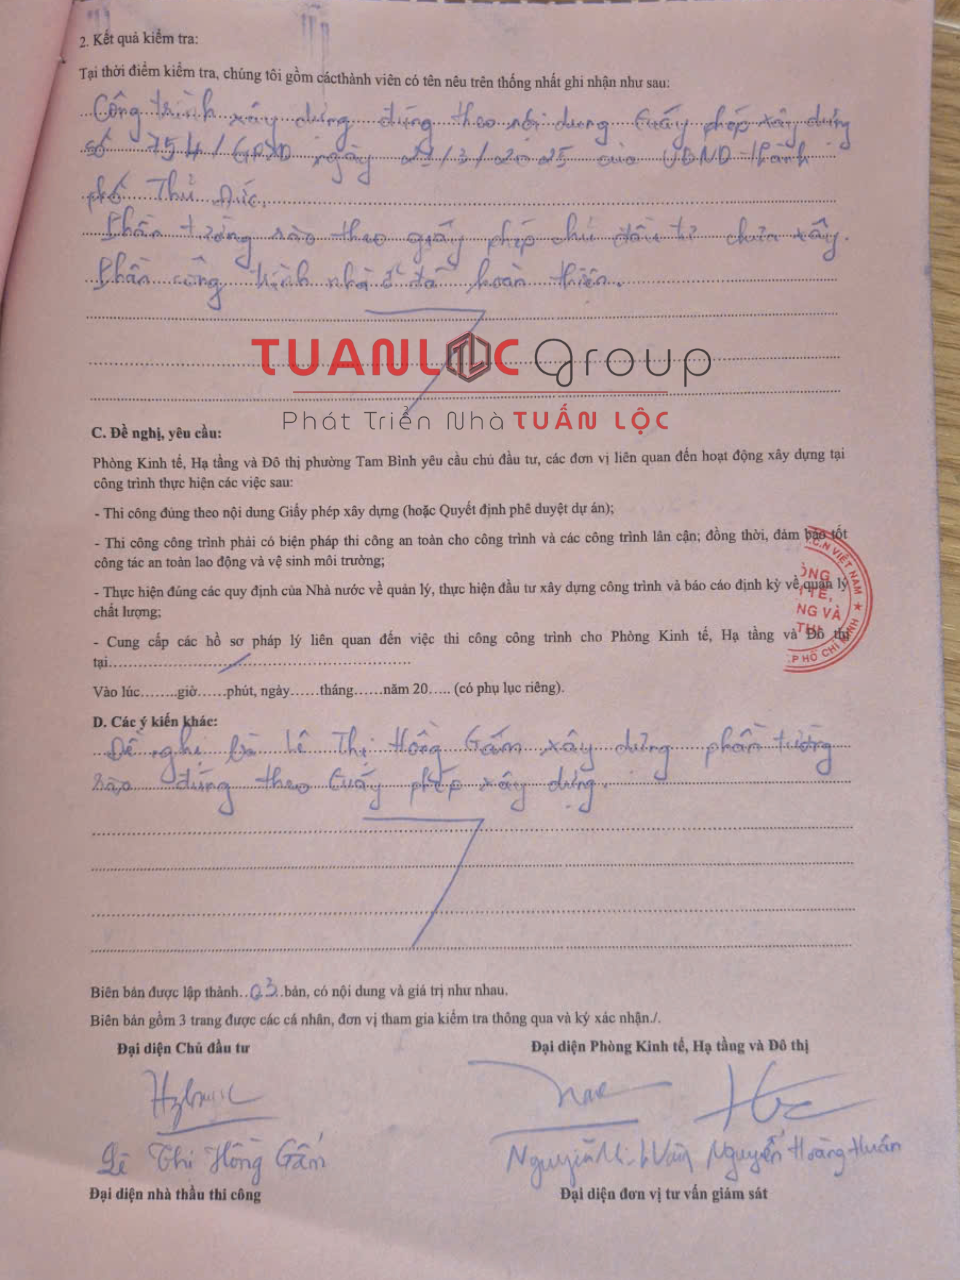 2. Kết quả kiểm tra:
Tại thời điểm kiểm tra, chúng tôi gồm cácthành viên có tên nêu trên thống nhất ghi nhận như sau:
Công trình xây dựng đúng theo nội dung Giấy phép xây dựng
số 754/GPXD ngày /3/2025 của UBND thành
phố Thủ Đức.
Phần tường rào theo giấy phép chủ đầu tư chưa xây.
Phần công trình nhà ở đã hoàn thiện.
TUANLỘC Group
Phát Triển Nhà TUẤN LỘC
C. Đề nghị, yêu cầu:
Phòng Kinh tế, Hạ tầng và Đô thị phường Tam Bình yêu cầu chủ đầu tư, các đơn vị liên quan đến hoạt động xây dựng tại
công trình thực hiện các việc sau:
- Thi công đúng theo nội dung Giấy phép xây dựng (hoặc Quyết định phê duyệt dự án);
- Thi công công trình phải có biện pháp thi công an toàn cho công trình và các công trình lân cận; đồng thời, đảm bảo tốt
công tác an toàn lao động và vệ sinh môi trường;
- Thực hiện đúng các quy định của Nhà nước về quản lý, thực hiện đầu tư xây dựng công trình và báo cáo định kỳ về quản lý
chất lượng;
- Cung cấp các hồ sơ pháp lý liên quan đến việc thi công công trình cho Phòng Kinh tế, Hạ tầng và Đô thị
tại
Vào lúc........giờ......phút, ngày......tháng......năm 20..... (có phụ lục riêng).
D. Các ý kiến khác:
Đề nghị bà Lê Thị Hồng Gấm xây dựng phần tường
rào đúng theo Giấy phép xây dựng.
Biên bản được lập thành..03..bản, có nội dung và giá trị như nhau.
Biên bản gồm 3 trang được các cá nhân, đơn vị tham gia kiểm tra thông qua và ký xác nhận./.
Đại diện Chủ đầu tư
Đại diện Phòng Kinh tế, Hạ tầng và Đô thị
Lê Thị Hồng Gấm
Nguyễn Văn
Nguyễn Hoàng Huấn
Đại diện nhà thầu thi công
Đại diện đơn vị tư vấn giám sát
C.N VIỆT NAM ★
ÒNG
TẾ,
NG VÀ
THỊ
P HỒ CHÍ MINH